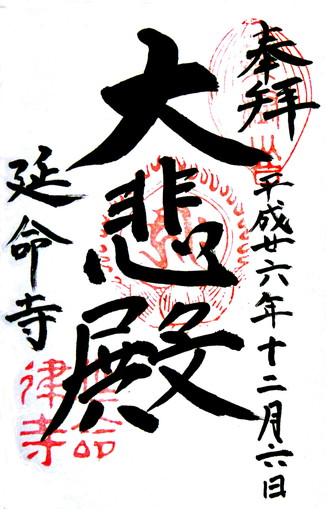 奉拝
平成廿六年十二月六日
大悲殿
延命寺